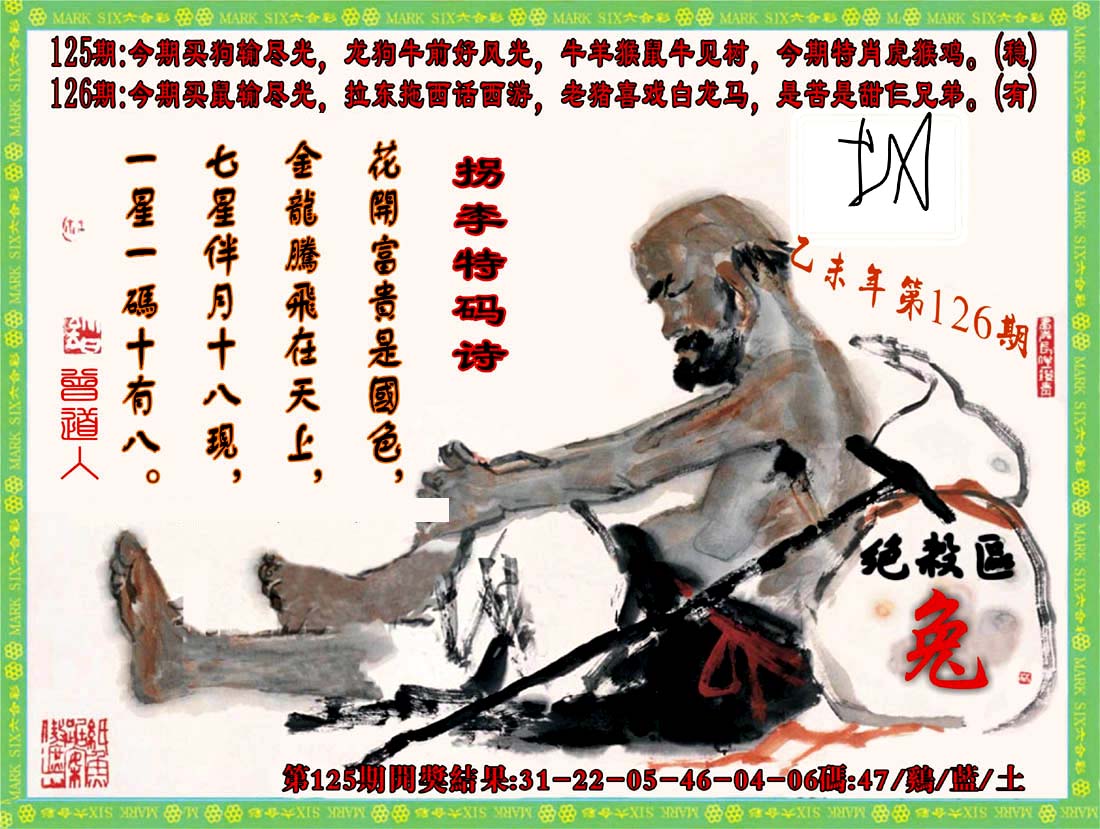 MARK SIX六合彩
125期:今期买狗输尽光，龙狗牛前好风光，牛羊猴鼠牛见树，今期特肖虎猴鸡。(稳)
126期:今期买鼠输尽光，拉东拖西话西游，老猪喜戏白龙马，是苦是甜仨兄弟。(有)
拐李特码诗
花開富貴是國色，
金龍騰飛在天上，
七星伴月十八現，
一星一碼十有八。
曾道人
乙未年第126期
绝殺區
兔
第125期開獎結果:31-22-05-46-04-06碼:47/鷄/藍/土